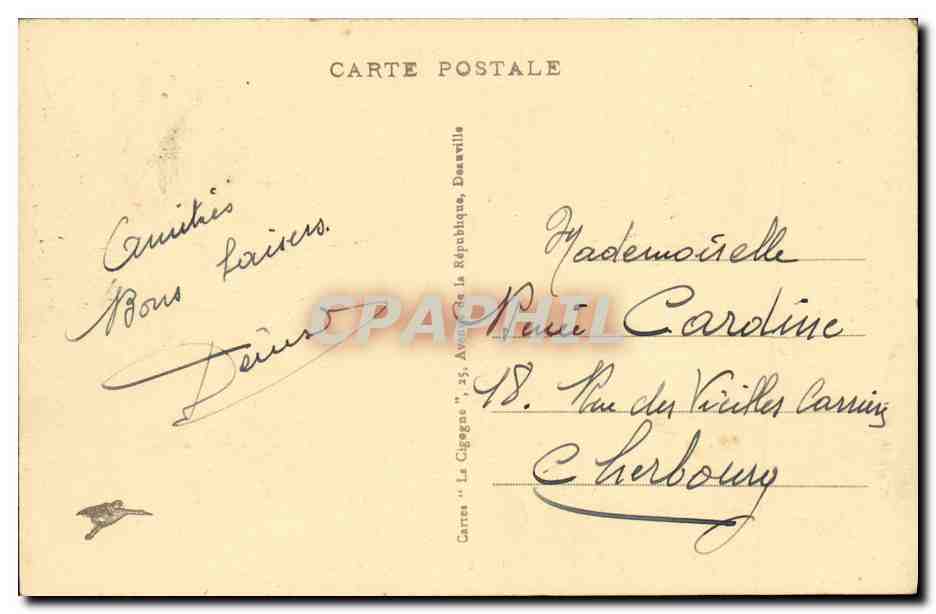 CARTE POSTALE
Amitiés
Bons baisers.
Denise
Cartes " La Cigogne ", 25, Avenue de la République, Deauville
CPAPHIL
Mademoiselle
Renée Cardine
18. Rue des Vieilles Carrières
Cherbourg